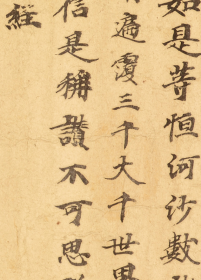 如是等恒河沙數
遍覆三千大千世界
信是稱讚不可思
經